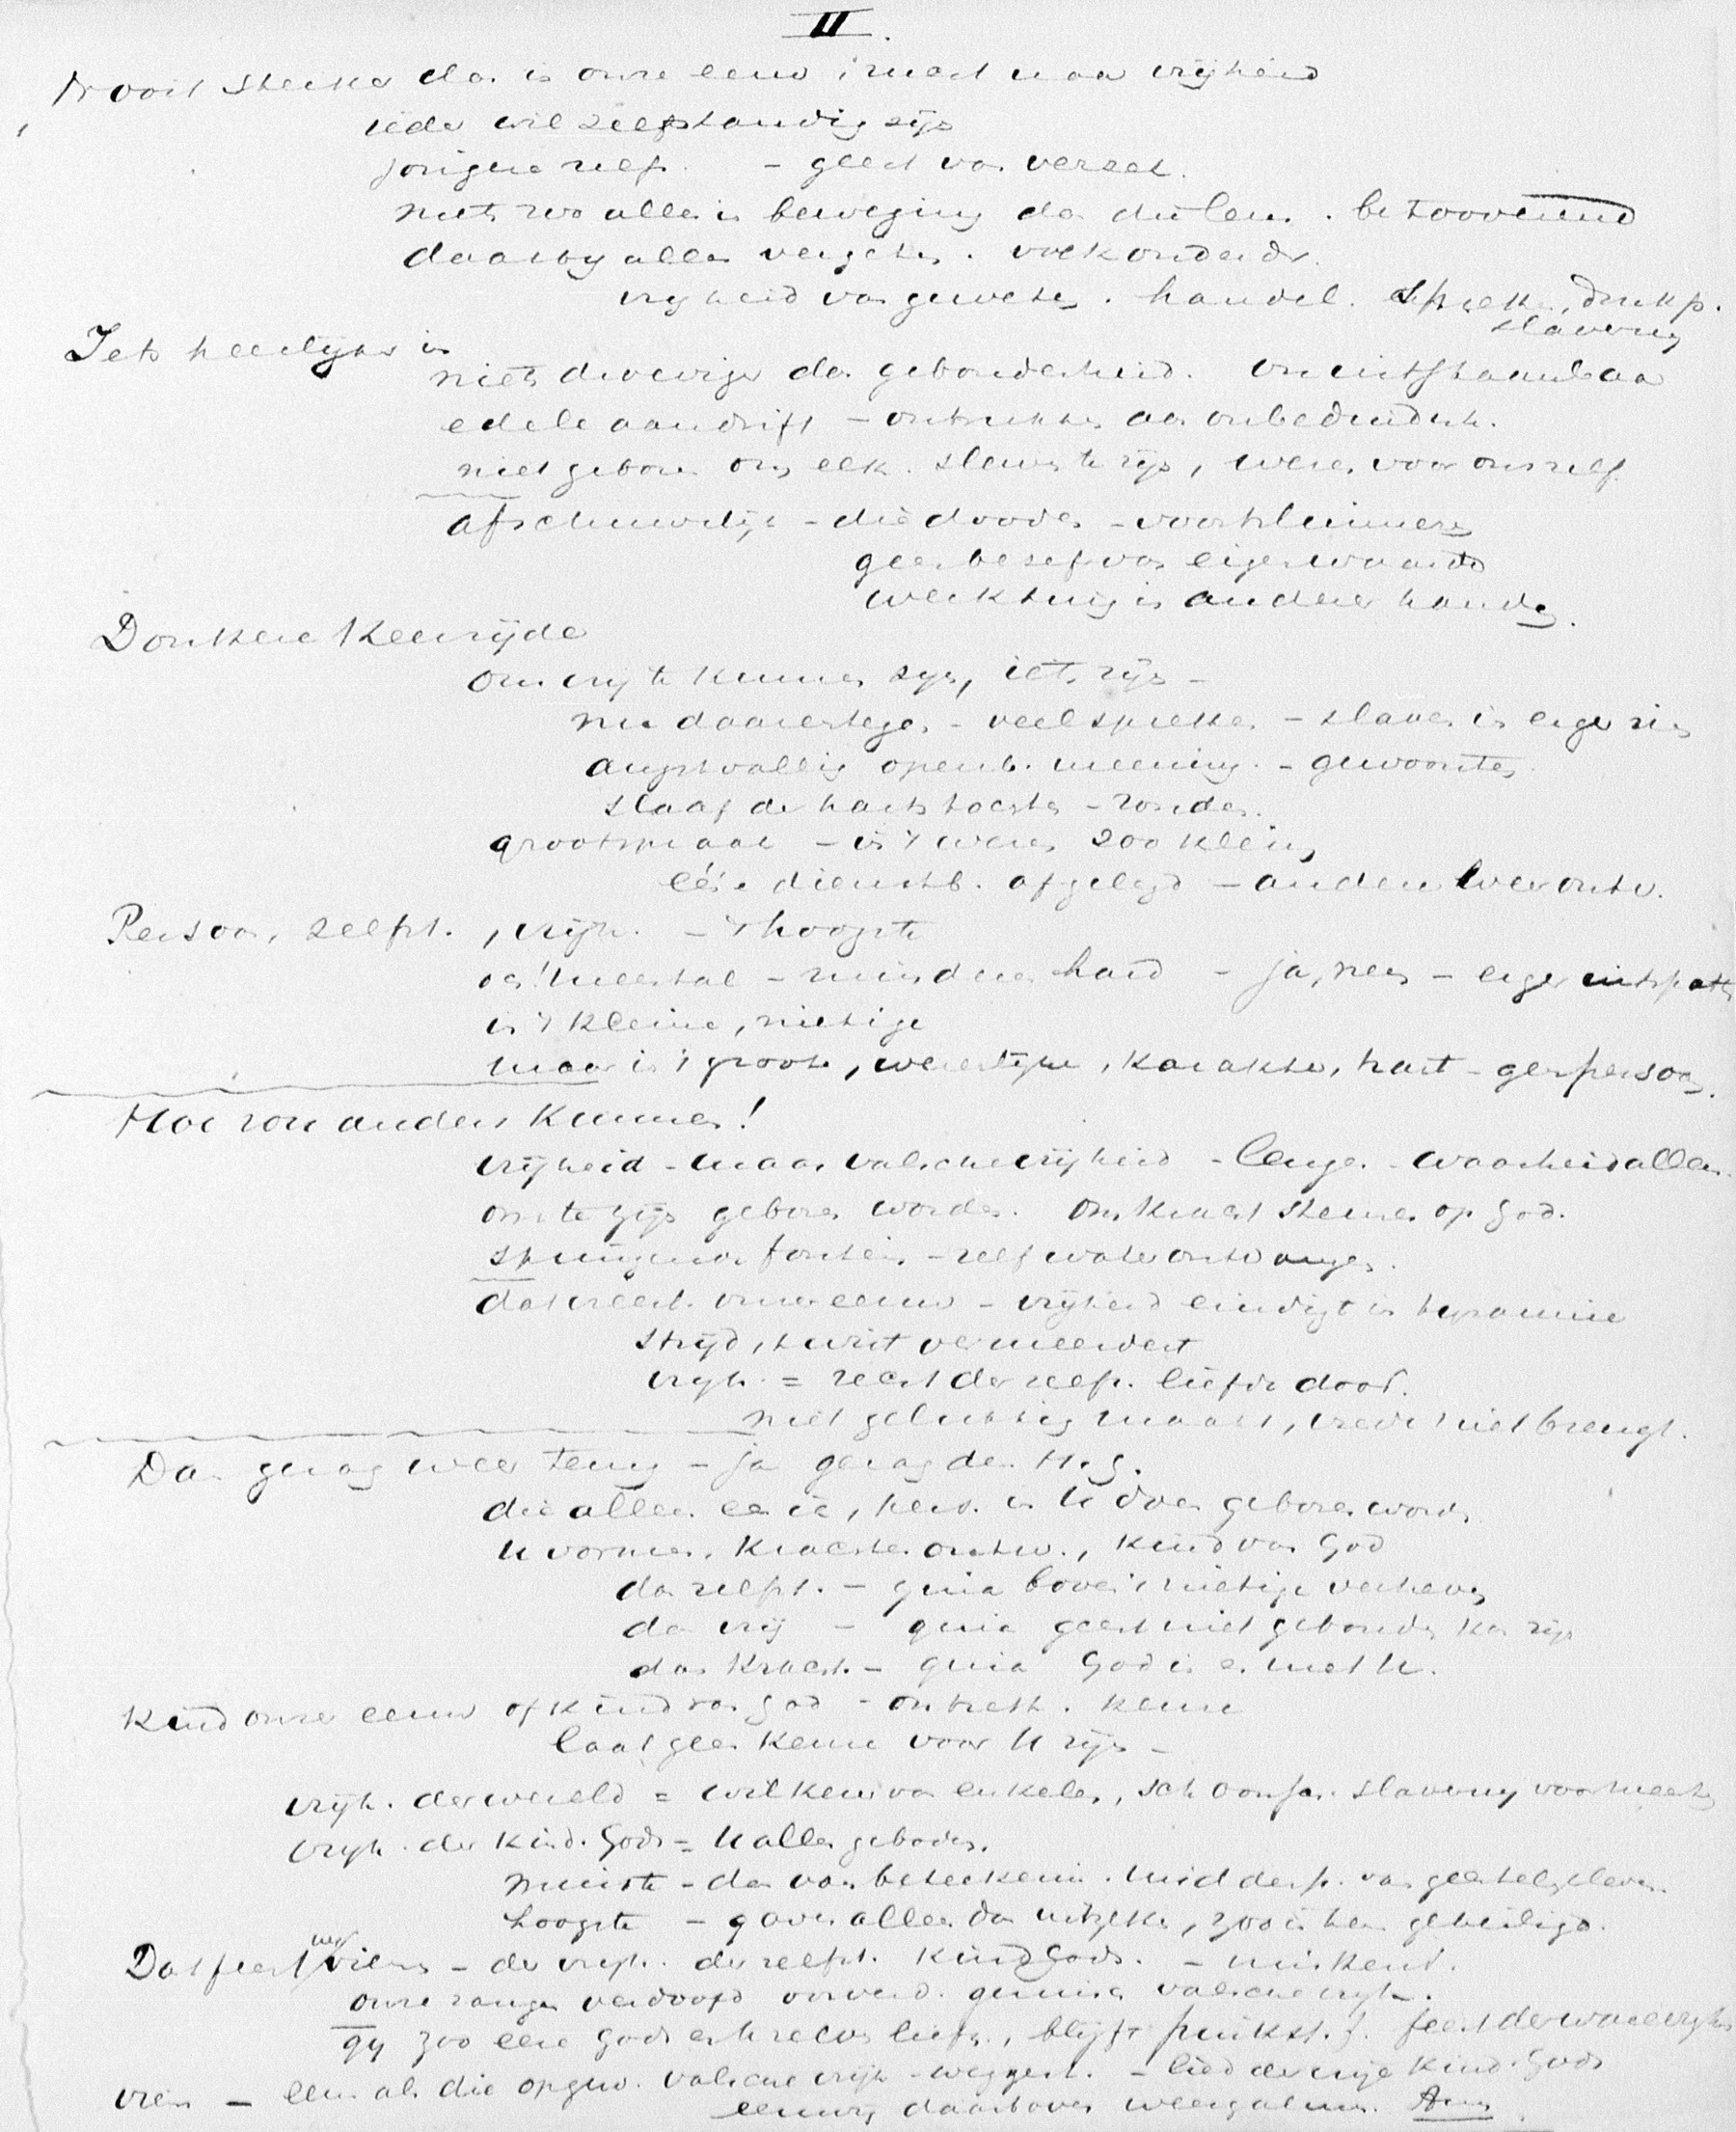 II.
Nooit sterker dan in onze eeuw; smacht naar vrijheid
ieder wil zelfstandig zijn
jongere zelfs. - geest van verzet.
niets zoo alles in beweging dan die leus. betooverend
daarbij alles vergeten.
vrijheid van geweten. handel. spreken, drukp.
slaverny
Iets heerlijks in
niets droeviger dan gebondenheid. onuitstaanbaar
edele aandrift - ontrukken aan onbeduidendh.
niet geboren om elk. slaven te zijn, wezen voor onszelf
afschuwelijk - die dooden - voortsluimeren
geen besef van eigenwaarde
werktuig in anderer handen.
Donkere keerzijde
om vrij te kunnen zijn, iets zijn -
nu daarentegen - veel spreken - slaven in eigen zin
angstvallig openb. meening. - gewoonten
slaaf der hartstochten - zonden.
grootspraak - in 't wezen zoo klein
één dienstb. afgelegd - andere weer ontv.
Persoon, zelfst., vrijh. - 't hoogste
och! meestal - hand - ja, neen - eigen
in 't kleine, nietige
maar in 't groote, wezenlijke, karakter, hart - geen persoon.
Hoe zou anders kunnen!
vrijheid - maar valsche vrijheid - leugen - waarheid alleen
om te zijn geboren worden. Ons kracht steunen op God.
springende fontein - zelf water ontvangen.
dat vreest onze eeuw - vrijheid eindigt in tyrannie
strijd, twist vermeerdert
vryh. = recht der zelfz. liefde dood.
niet gelukkig maakt, vrede niet brengt.
Dan gevraagd weer terug - ja gevraagd den H. G.
die alleen in U doen geboren worden
U vormen, krachten ontw., kind van God
dan zelfst. - quia boven 't nietige verheven
dan vrij - quia geest niet gebonden kan zijn
dan kracht - quia God is en met U.
Kind onzer eeuw of kind van God - ontzett. keuze
laat geen keuze voor U zijn -
vrijh. der wereld = willekeur van enkelen, schoonsch. slaverny voor meesten
vryh. der kind. Gods = U alles geboden.
minste - dan van beteekenis. middelp. van geestelijk leven.
hoogste - gaven alleen dan uitzeker, zoo in hem geheiligd.
Dat feest wij vieren - der vryh. der zelfst. kind Gods. - miskend.
onze zangen verdoofd valsche vryh.
gij zoo eere Gods en liefh., blijft pinkst. f. feest der ware vryheid
vieren - eens als die opgew. valsche vrijh. - weggest. - lied der vrije kind. Gods
eeuwig daarboven weergalmen. Amen